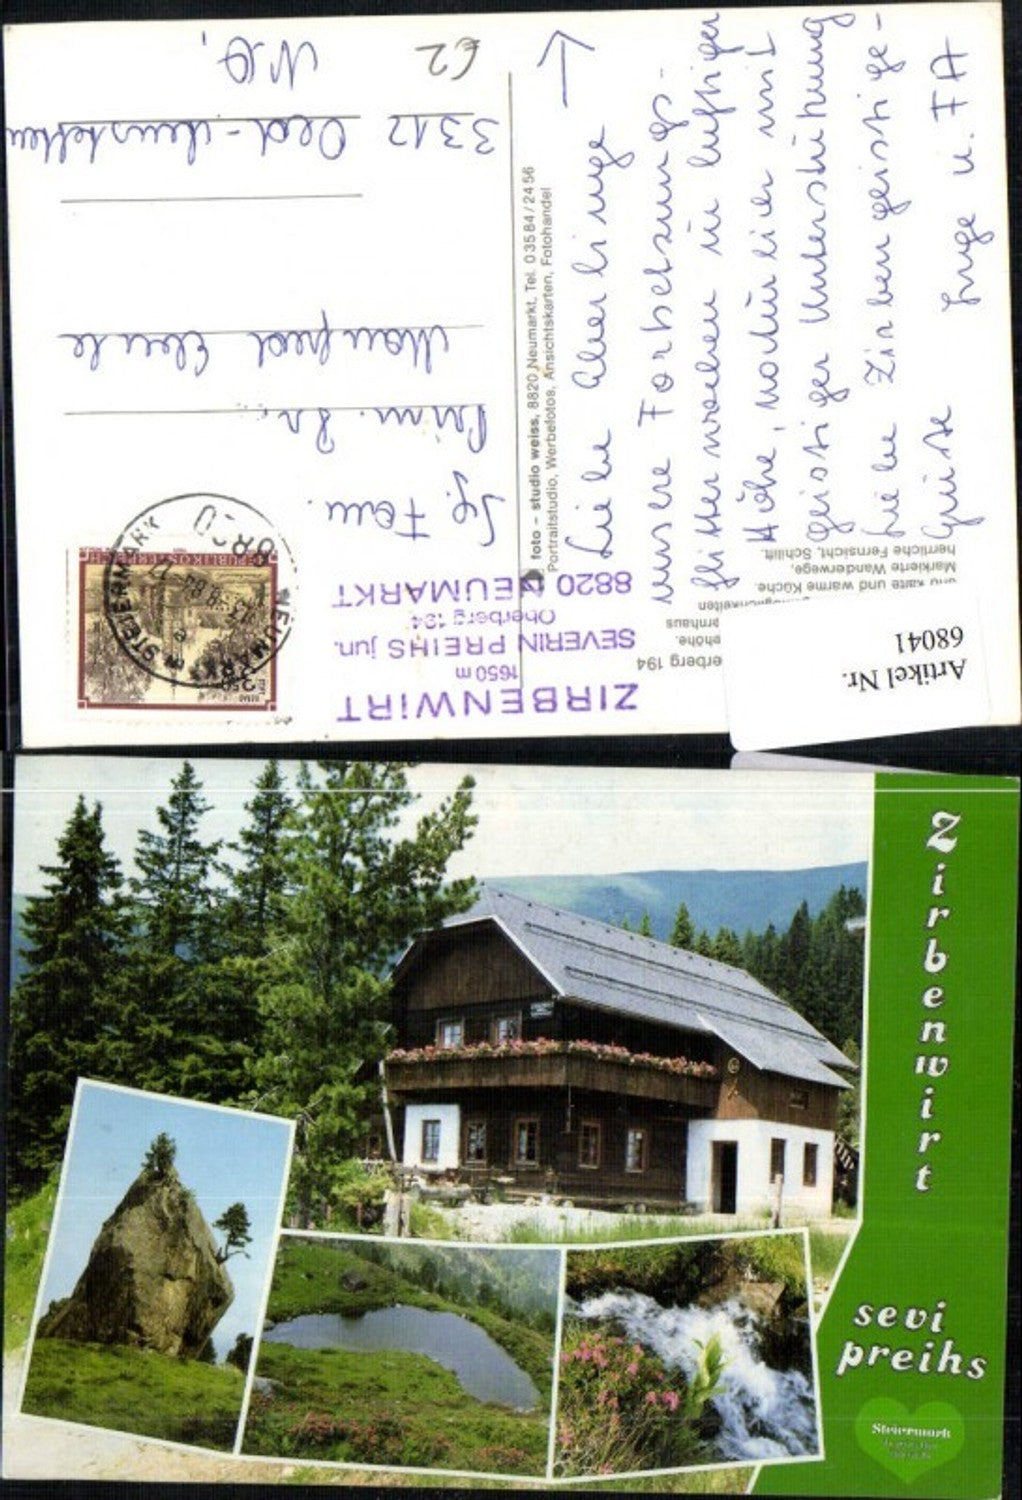 Liebe Aberlinge
unsere Fortsetzungs-
flitterwochen in luftiger
Höhe, natürlich mit
geistiger Unterstützung
Liebe Zirbengeistige-
Grüße Inge u. FH
Fam.
Prim. Dr.
Manfred
3312 Oed-
N.Ö.
62
foto - studio weiss, 8820 Neumarkt, Tel. 0 35 84 / 24 56
Portraitstudio, Werbefotos, Ansichtskarten, Fotohandel
ZIRBENWIRT
1650 m
SEVERIN PREIHS jun.
Oberberg 194
8820 NEUMARKT
erberg 194
und kalte und warme Küche.
Markierte Wanderwege,
herrliche Fernsicht, Schilift.
Artikel Nr.
68041
REPUBLIK ÖSTERREICH
8820 NEUMARKT IN STEIERMARK
Zirbenwirt
sevi
preihs
Steiermark